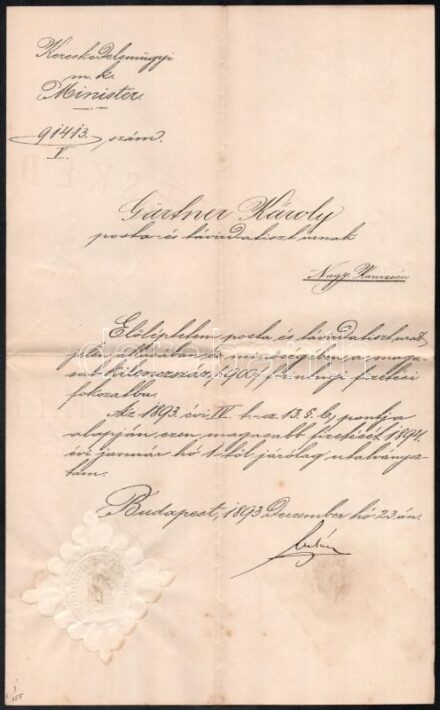 Kereskedelemügyi
m. k.
Minister.
91413. szám.
V.
Gärtner Károly
posta- és távirdatiszt úrnak
Nagy-Kanizsán
Előléptetem posta és távirdatiszt urat
a maga-
sabb kilenczszáz /900/ forintnyi fizetési
fokozatba.
Az 1893. évi IV. t.-cz. 13. § 6, pontja
alapján ezen magasabb fizetését 1894.
évi január hó 1-től járólag utalványoz-
tam.
Budapest, 1893 Deczember hó 23.-án.